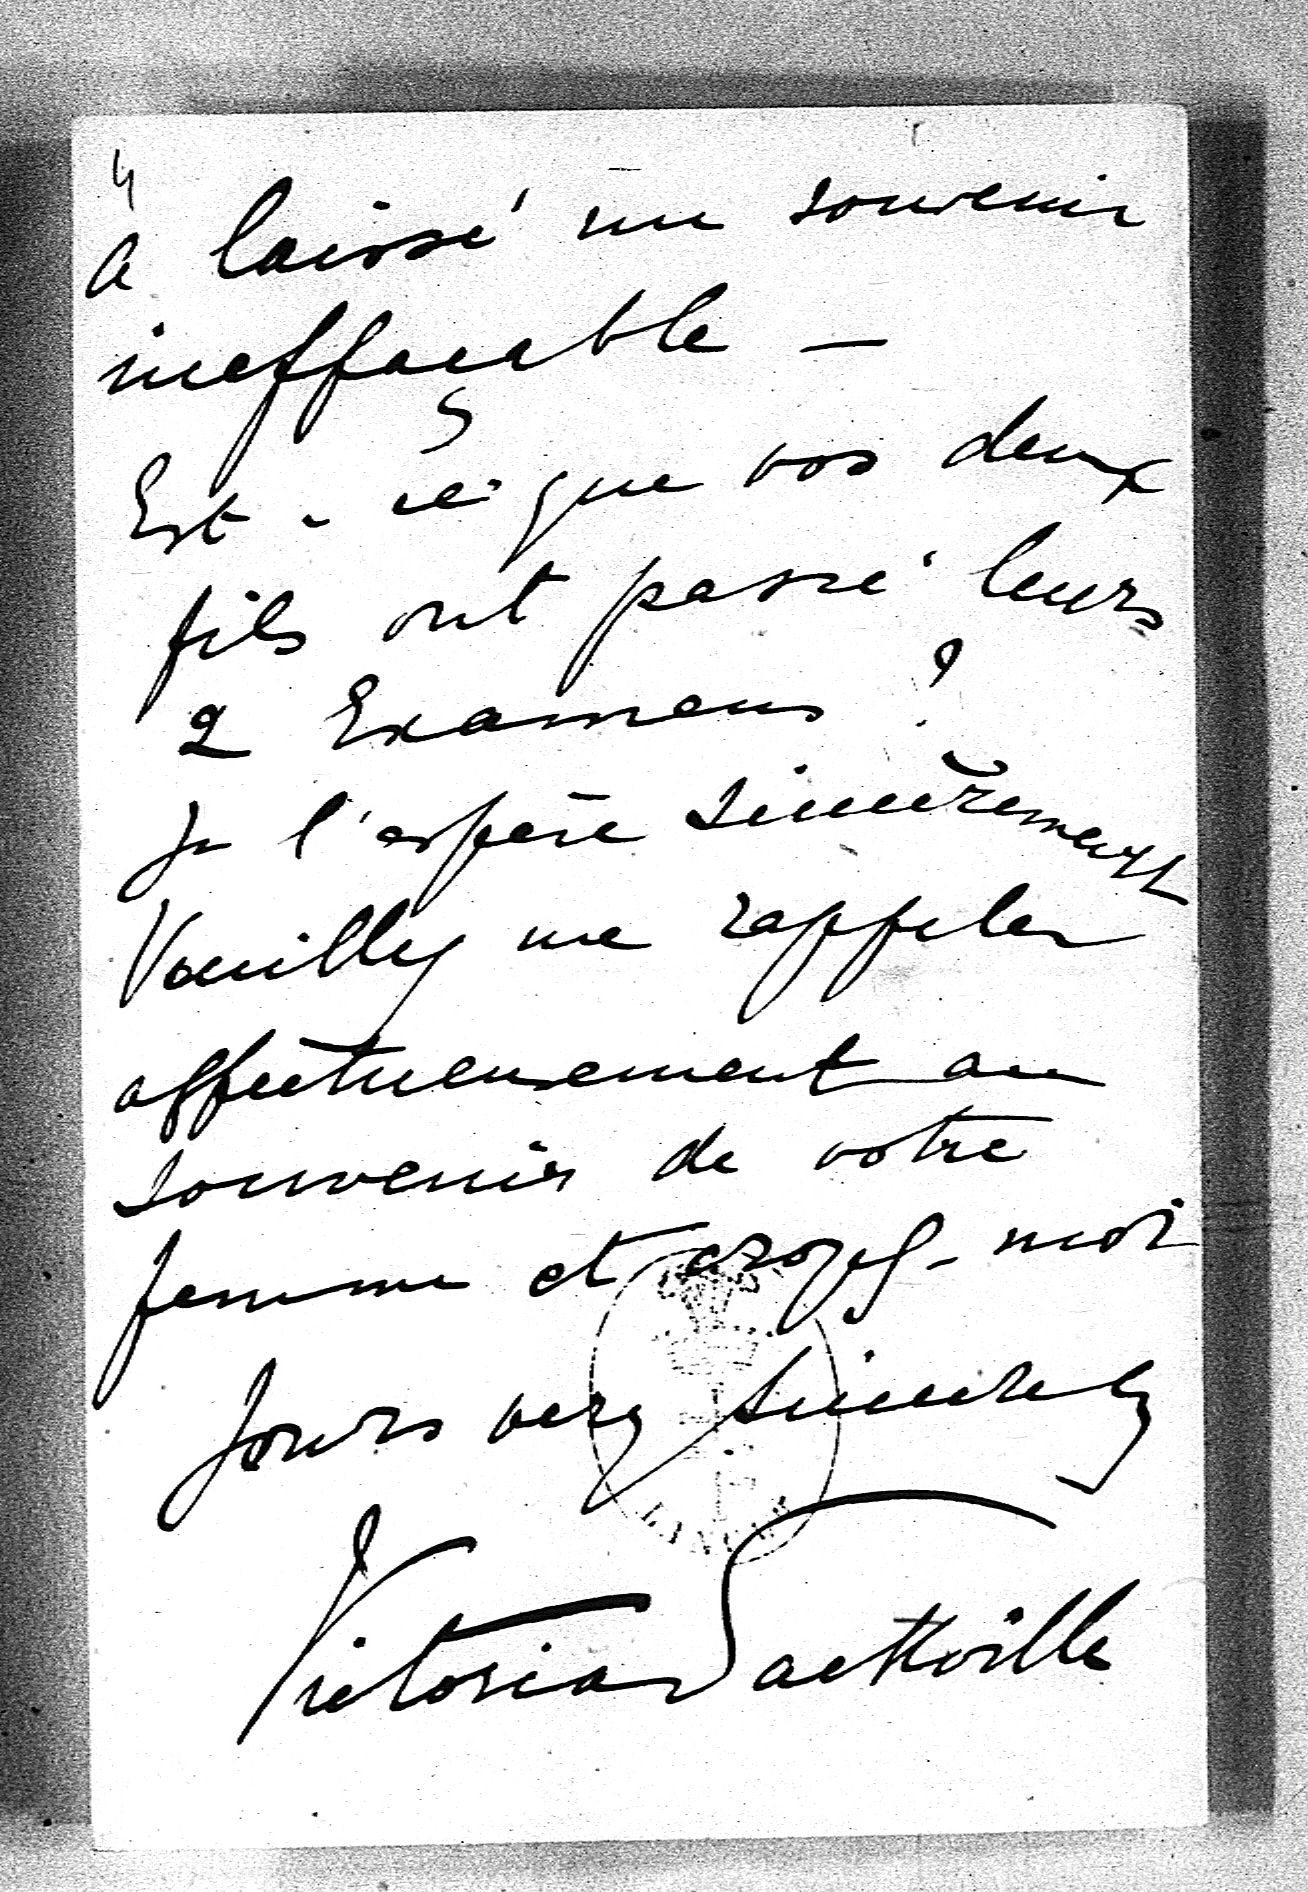 4
a laissé un souvenir
ineffaçable —
Est-ce que vos deux
fils ont passé leurs
2 Examens ?
Je l'espère sincèrement
Veuillez me rappeler
affectueusement au
souvenir de votre
femme et croyez-moi
Yours very sincerely
Victoria Sackville